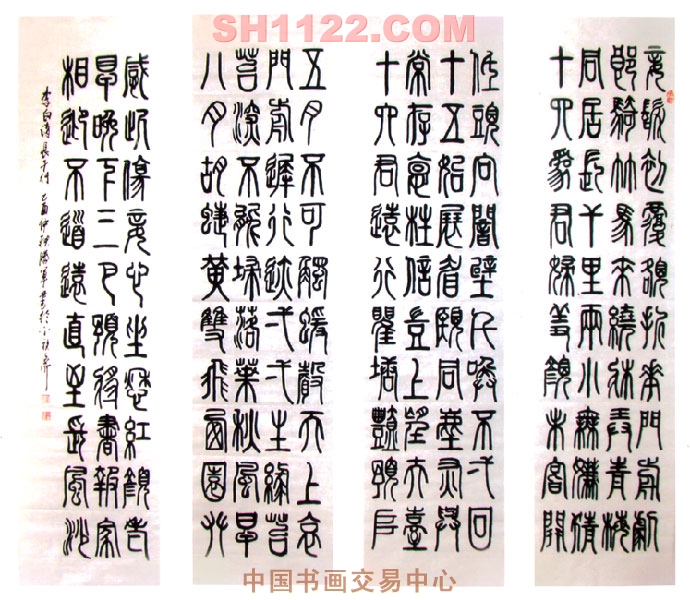 SH1122.COM
妾髮初覆額折華門前劇
郎騎竹馬來繞牀弄青梅
同居長干里兩小無嫌猜
十四為君婦羞顏未嘗開
低頭向闇壁千喚不一回
十五始展眉願同塵灰與
常存抱柱信豈上望夫臺
十六君遠行瞿塘灩澦堆
五月不可觸猨聲天上哀
門前遲行跡一一生綠苔
苔深不能掃落葉秋風早
八月胡蝶黃雙飛西園草
感此傷妾心坐愁紅顏老
早晚下三巴預將書報家
相迎不道遠直至長風沙
李白詩長干行 乙酉仲秋
中国书画交易中心